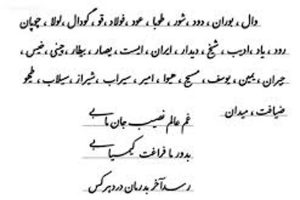 وال ، بوران ، دود ، شور ، طوبا ، عود ، فولاد ، قو ، گودال ، لولا ، چوپان
رود ، یاد ، ادیب ، شیخ ، دیدار ، ایران ، ایست ، بیطار ، چینی ، خیس ،
جیران ، یمین ، یوسف ، مسیح ، هیوا ، امیر ، سیراب ، شیراز ، سیلاب ،
ضیافت ، میدان
غم عالم نصیب جان ما بی
بدور ما فراغت کیمیا بی
رسد آخر بدرمان درد هرکس